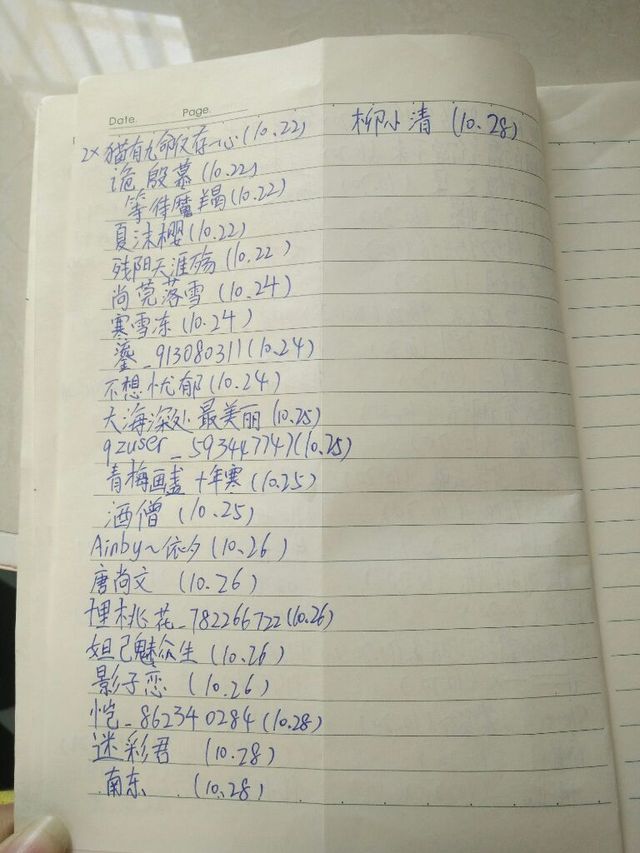 Date.    Page.
2× 猫有九命仅存一心 (10.22)
诡殷慕 (10.22)
等待魔羯 (10.22)
夏沫樱 (10.22)
残阳天涯殇 (10.22)
尚莞落雪 (10.24)
寒雪冻 (10.24)
鎏_913080311 (10.24)
不想忧郁 (10.24)
大海深处最美丽 (10.25)
qzuser_593447747 (10.25)
青梅画盏十年寒 (10.25)
酒僧 (10.25)
Ainby～依夕 (10.26)
唐尚文 (10.26)
桃花_782266722 (10.26)
妲己魅众生 (10.26)
影子恋 (10.26)
恺_862340284 (10.28)
迷彩君 (10.28)
南东 (10.28)
柳小清 (10.28)